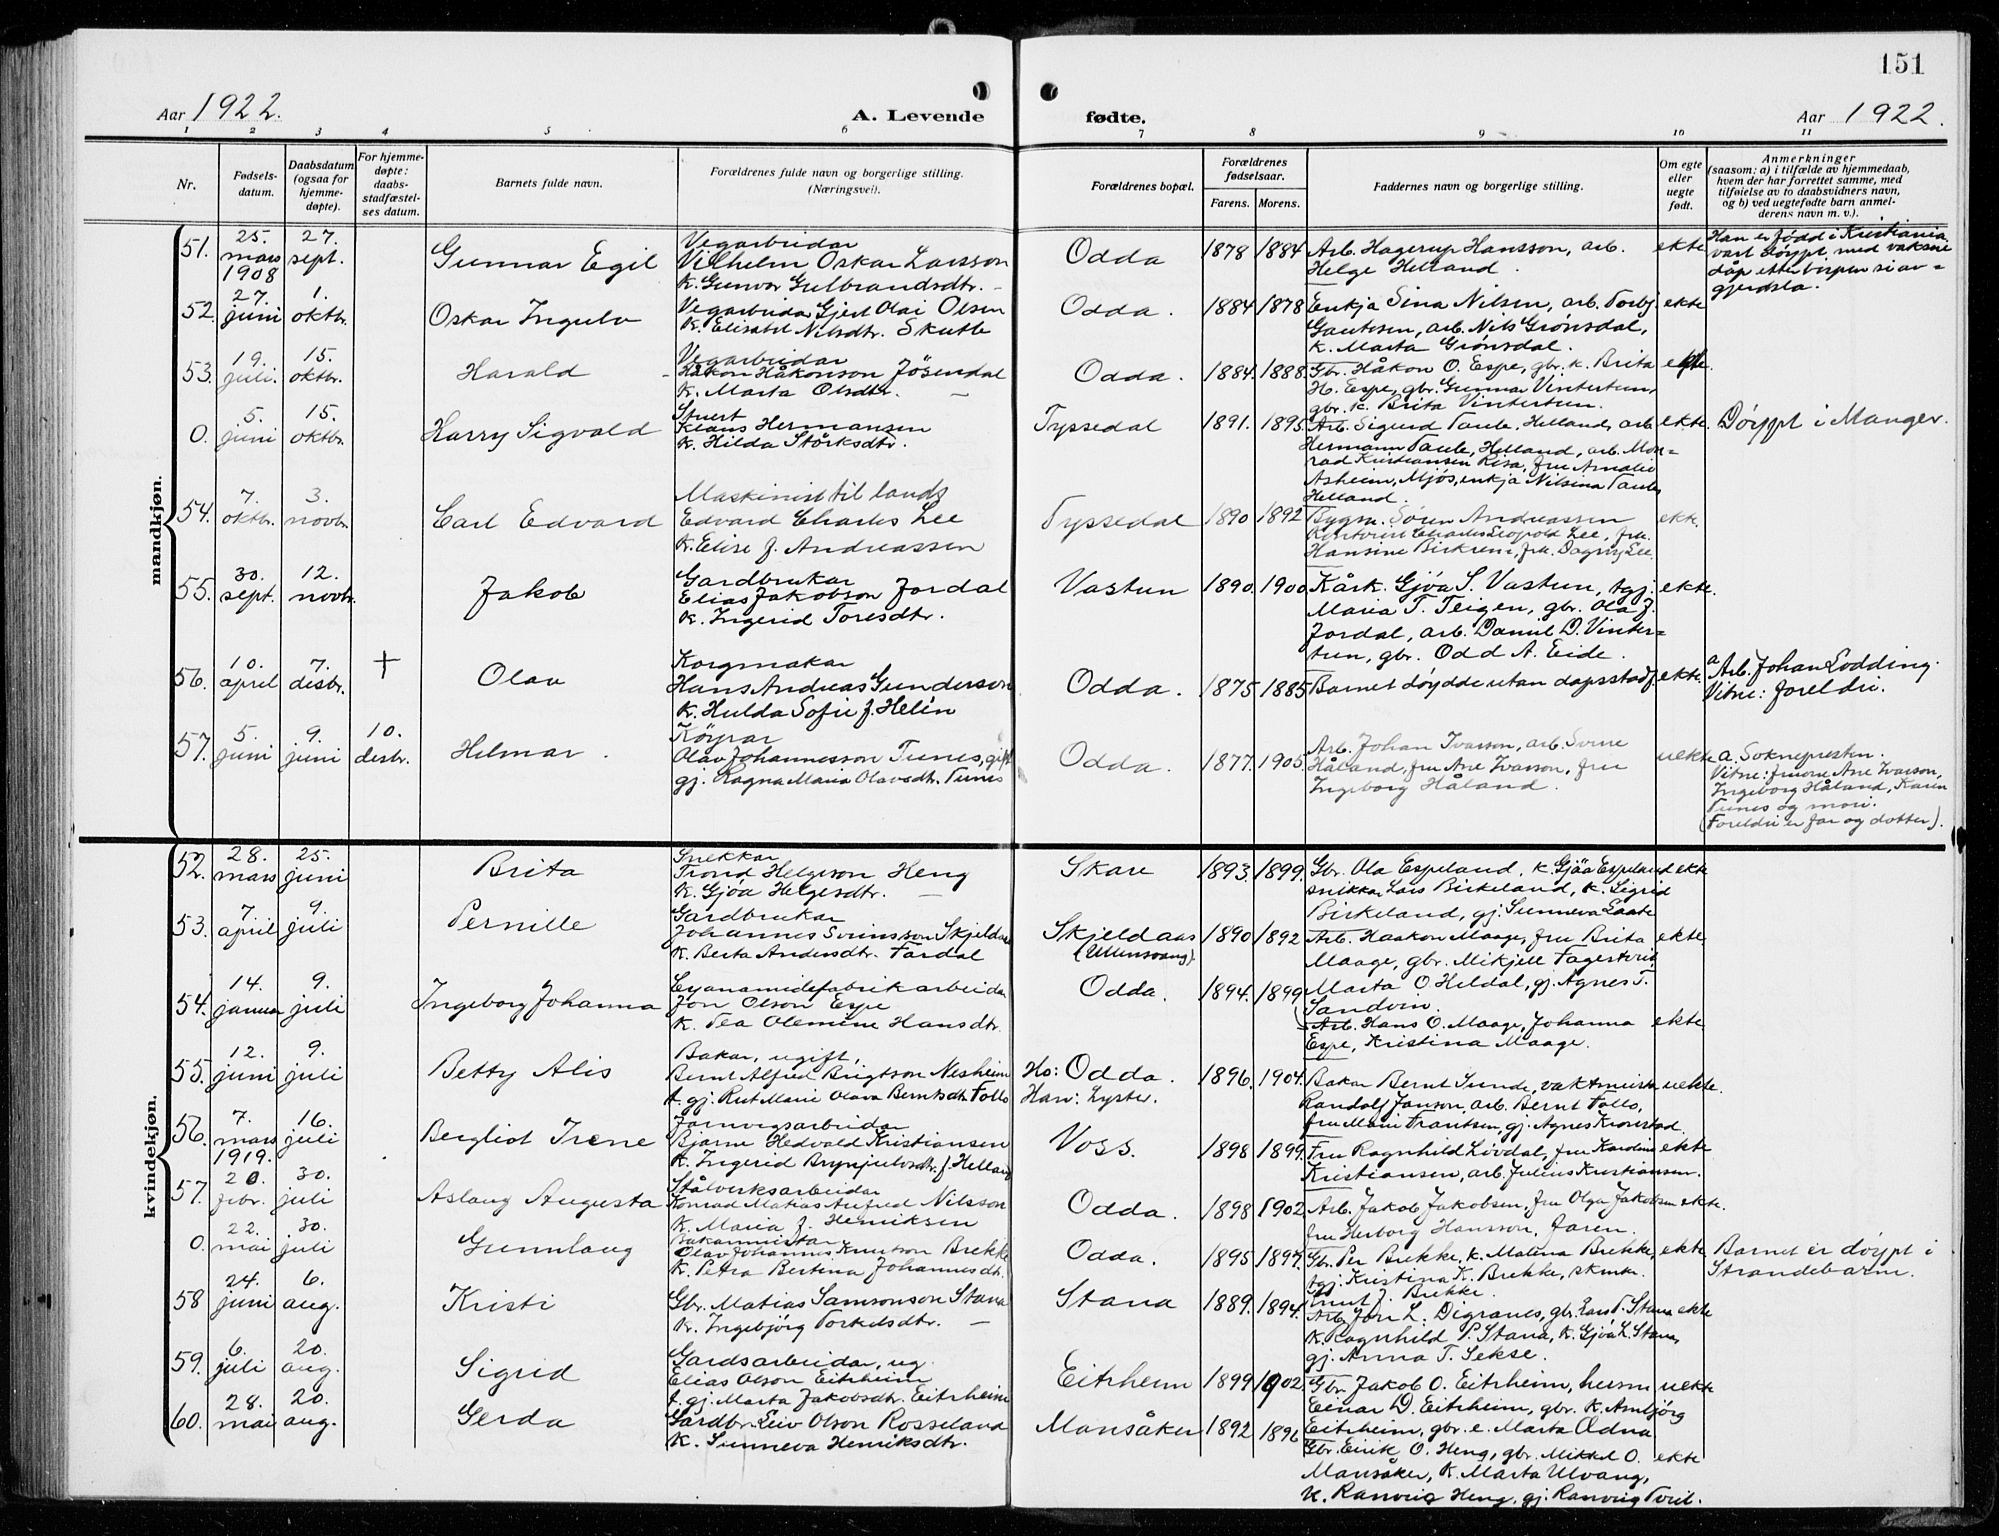 151
Aar 1922.
A. Levende fødte.
Aar 1922.
1 2 3 4 5 6 7 8 9 10 11
Nr.
Fødsels-
datum.
Daabsdatum
(ogsaa for
hjemme-
døpte).
For hjemme-
døpte:
daabs-
stadfæstel-
ses datum.
Barnets fulde navn.
Forældrenes fulde navn og borgerlige stilling.
(Næringsvei).
Forældrenes bopæl.
Forældrenes
fødselsaar.
Farens. Morens.
Faddernes navn og borgerlige stilling.
Om egte
eller
uegte
født.
Anmerkninger
(saasom: a) i tilfælde av hjemmedaab,
hvem der har forrettet samme, med
tilføielse av to daabsvidners navn,
og b) ved uegtefødte barn anmel-
derens navn m. v.).
mandkjøn.
51. 25. mars 1908 27. sept. Gunnar Egil
Vegarbeidar
Vilhelm Oskar Larsson
k. Gunvor Gulbrandsdtr. –
Odda 1878 1884
Arb. Hagerup Hansson, arb.
Helge Helland.
ekte
Han er fødd i Kristiania
vart døypt med vaksne
dåp etter borgen si av-
gjerdsla.
52. 27. juni 1. oktbr. Oskar Ingulv
Vegarbeidar Gjert Olai Olsen
k. Elisabet Nilsdtr. Skutle
Odda. 1884 1878
Enkja Sina Nilsen, arb. Torbj.
Gautesen, arb. Nils Grønsdal,
k. Marta Grønsdal.
ekte
53. 19. juli. 15. oktbr. Harald
Vegarbeidar
Håkon Håkonson Jøsendal
k. Marta Olsdtr. –
Odda. 1884. 1888.
Gbr. Håkon O. Espe, gbr. k. Brita
H. Espe, gbr. Gunnar Vintertun,
gbr. k. Brita Vintertun.
ekte.
0. 5. juni 15. oktbr. Harry Sigvald
Stuert
Klaus Hermansen
k. Hilda Størksdtr.
Tyssedal 1891. 1895
Arb. Sigurd Taule, Helland, arb.
Hermann Taule, Helland, arb. Mon-
rad Kristiansen Risa, fru Amalie
Asheim, Mjøs, enkja Nilsina Taule
Helland.
ekte. Døypt i Manger.
54. 7. oktbr. 3. novbr. Carl Edvard
Maskinist til lands
Edvard Charles Lee
k. Elise f. Andreassen
Tyssedal 1890 1892
Bygm. Søren Andreassen
Kontorist Charles Leopold Lee, fru
Hansine Birkrem, fru Dagny Lee
ekte.
55. 30. sept. 12. novbr. Jakob
Gardbrukar
Elias Jakobson Jordal
k. Ingerid Toresdtr.
Vastun 1890. 1900
Kårk. Gjøa S. Vastun, tgj.
Maria T. Teigen, gbr. Ola J.
Jordal, arb. Daniel D. Vinter-
tun, gbr. Odd A. Eide.
ekte.
56. 10. april 7. desbr. + Olav
Korgmakar
Hans Andreas Gunderson
k. Hulda Sofie f. Helén
Odda. 1875 1885
Barnet døydde utan dåpsstadf.
ekte.
a Arb. Johan Lodding.
Vitne: foreldri.
57. 5. juni 9. juni 10. desbr. Helmar.
Køyrar
Olav Johannesson Tunes, gift
gj. Ragna Maria Olavsdtr. Tunes
Odda. 1877. 1905.
Arb. Johan Ivarson, arb. Sverre
Håland, fru Ane Ivarson, fru
Ingeborg Håland.
uekte
a. Soknepresten.
Vitne: fruene Ane Ivarson,
Ingeborg Håland, Karen
Tunes og mori.
(Foreldri er far og dotter).
kvindekjøn.
52. 28. mars 25. juni Brita
Snekkar
Trond Helgeson Heng
k. Gjøa Helgesdtr. –
Skare 1893. 1899.
Gbr. Ola Espeland, k. Gjøa Espeland
snikkar Lars Birkeland, k. Sigrid
Birkeland, gj. Sunneva Laate
ekte
53. 7. april 9. juli Pernille
Gardbrukar
Johannes Sveinsson Skjeldaas
k. Berta Andersdtr. Fardal
Skjeldaas
(Ullensvang).
1890 1892
Arb. Haakon Maage, fru Brita
Maage, gbr. Mikjell Fagestein,
Marta O Hildal, gj. Agnes T.
Sandvin.
ekte
54. 14. januar 9. juli Ingeborg Johanna
Cyanamidefabrikarbeidar
Jon Olson Espe
k. Tea Olemine Hansdtr.
Odda. 1894. 1899
Arb. Hans O. Maage, Johanna
Espe, Kristina Maage.
ekte
55. 12. juni 9. juli Betty Alis
Bakar, ugift,
Bernt Alfred Brigtson Nesheim
f. gj. Rut Marie Olava Berntsdtr. Follo
Ho: Odda.
Han: Lyster.
1896. 1904.
Bakar Bernt Sunde, vaktmeistar
Randolf Janson, arb. Bernt Follo,
fru Marie Frantsen, gj. Agnes Kronstad.
uekte.
56. 7. mars 1919. 16. juli Bergliot Irene
Jarnvegsarbeidar
Bjarne Hedvald Kristiansen
k. Ingerid Brynjulvsdtr. f. Helland
Voss. 1898 1899.
Fru Ragnhild Lövdal, fru Kardine
Kristiansen, arb. Julius Kristiansen.
ekte
57. 20. febr. 30. juli Aslaug Augusta
Stålverksarbeidar
Konrad Matias Alfred Nilsson
k. Maria f. Henriksen
Odda. 1898 1902.
Arb. Jakob Jakobsen, fru Olga Jakobsen
fru Herborg Hansson, faren.
ekte.
0. 22. mai 30. juli Gunnlaug
Bakarmeistar
Olav Johannes Knutson Brekke
k. Petra Bertina Johannesdtr.
Odda. 1895 1897.
Gbr. Per Brekke, k. Malena Brekke,
tgj. Kristina K. Brekke, skmkr.
Knut J. Brekke.
ekte
Barnet er døypt i
Strandebarm.
58 24. juni 6. aug. Kristi
Gbr. Matias Samsonson Stana
k. Ingebjørg Torkelsdtr. –
Stana 1889. 1894.
Arb. Jon L. Digranes, gbr. Lars P. Stana
k. Ragnhild P. Stana, k. Gjøa L. Stana,
gj. Anna T. Sekse.
ekte
59. 6. juli 20. aug. Sigrid
Gardsarbeidar, ug.
Elias Olson Eitrheim
f. gj. Marta Jakobsdtr. Eitrheim
Eitrheim 1899 1902.
Gbr. Jakob O. Eitrheim, husm
Einar D. Eitrheim, gbr. k. Ambjørg
Eitrheim, gbr. e. Marta Ædna
uekte
60. 28. mai 20. aug. Gerda
Gardbr. Leiv Olson Rosseland
k. Sunneva Henriksdtr.
Mansåker 1892 1896
Gbr. Eirik O. Heng, gbr. Mikkel O.
Mansåker, k. Marta Ulvang,
k. Ranveig Heng, gj. Ranveig Tveit.
ekte